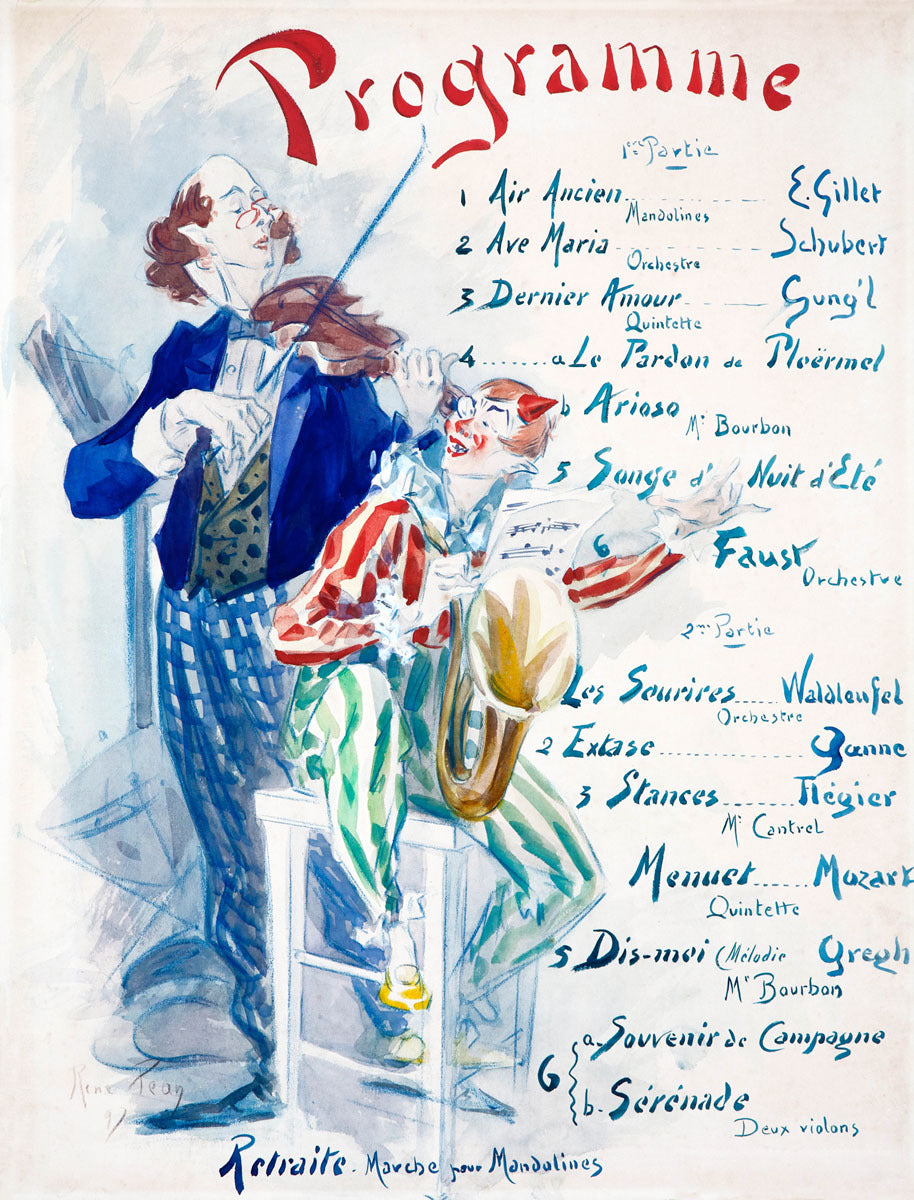 Programme
1ère Partie
1 Air Ancien ........ E. Gillet
Mandolines
2 Ave Maria ........ Schubert
Orchestre
3 Dernier Amour ........ Gung'l
Quintette
4 ...... a Le Pardon de Ploërmel
b Arioso
Mr Bourbon
5 Songe d' Nuit d'Eté
6 Faust
Orchestre
2me Partie
Les Sourires .... Waldteufel
Orchestre
2 Extase ........ Ganne
3 Stances ...... Flégier
Mr Cantrel
Menuet ..... Mozart
Quintette
5 Dis-moi (Mélodie Gregh
Mr Bourbon
6 a. Souvenir de Campagne
b. Sérénade
Deux violons
Retraite. Marche pour Mandolines
René Péan